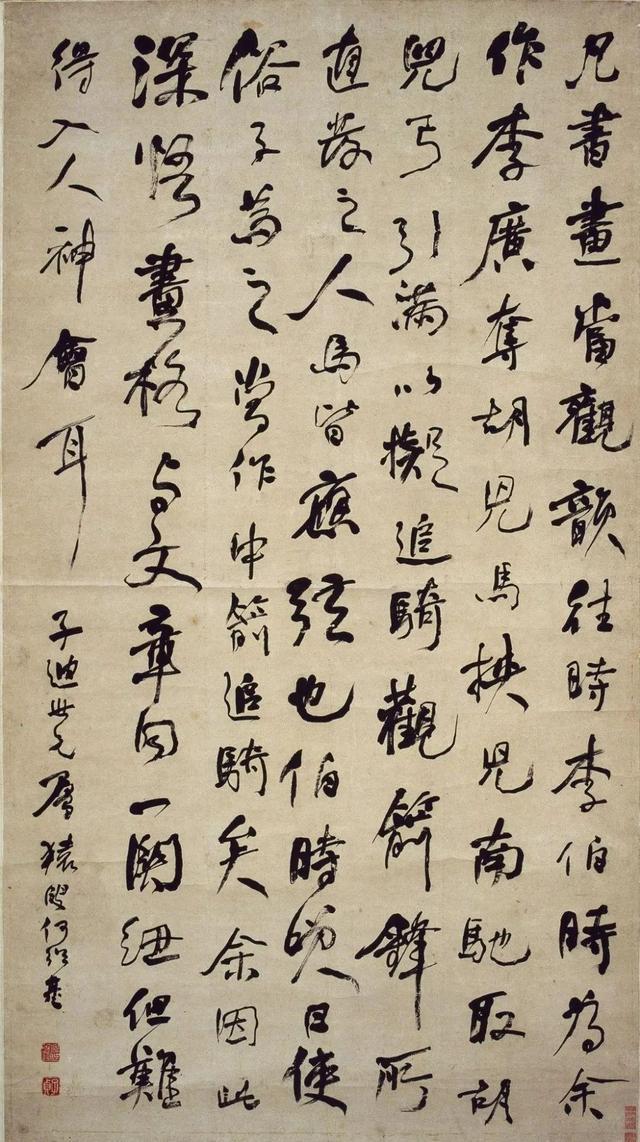 凡書畫當觀韻往時李伯時為余
作李廣奪胡兒馬挾兒南馳取胡
兒弓引滿以擬追騎觀箭鋒所
直發之人馬皆應弦也伯時笑曰使
俗子為之當作中箭追騎矣余因此
深悟畫格與文章同一關紐但難
得入人神會耳
子迪世兄屬猨叟何紹基